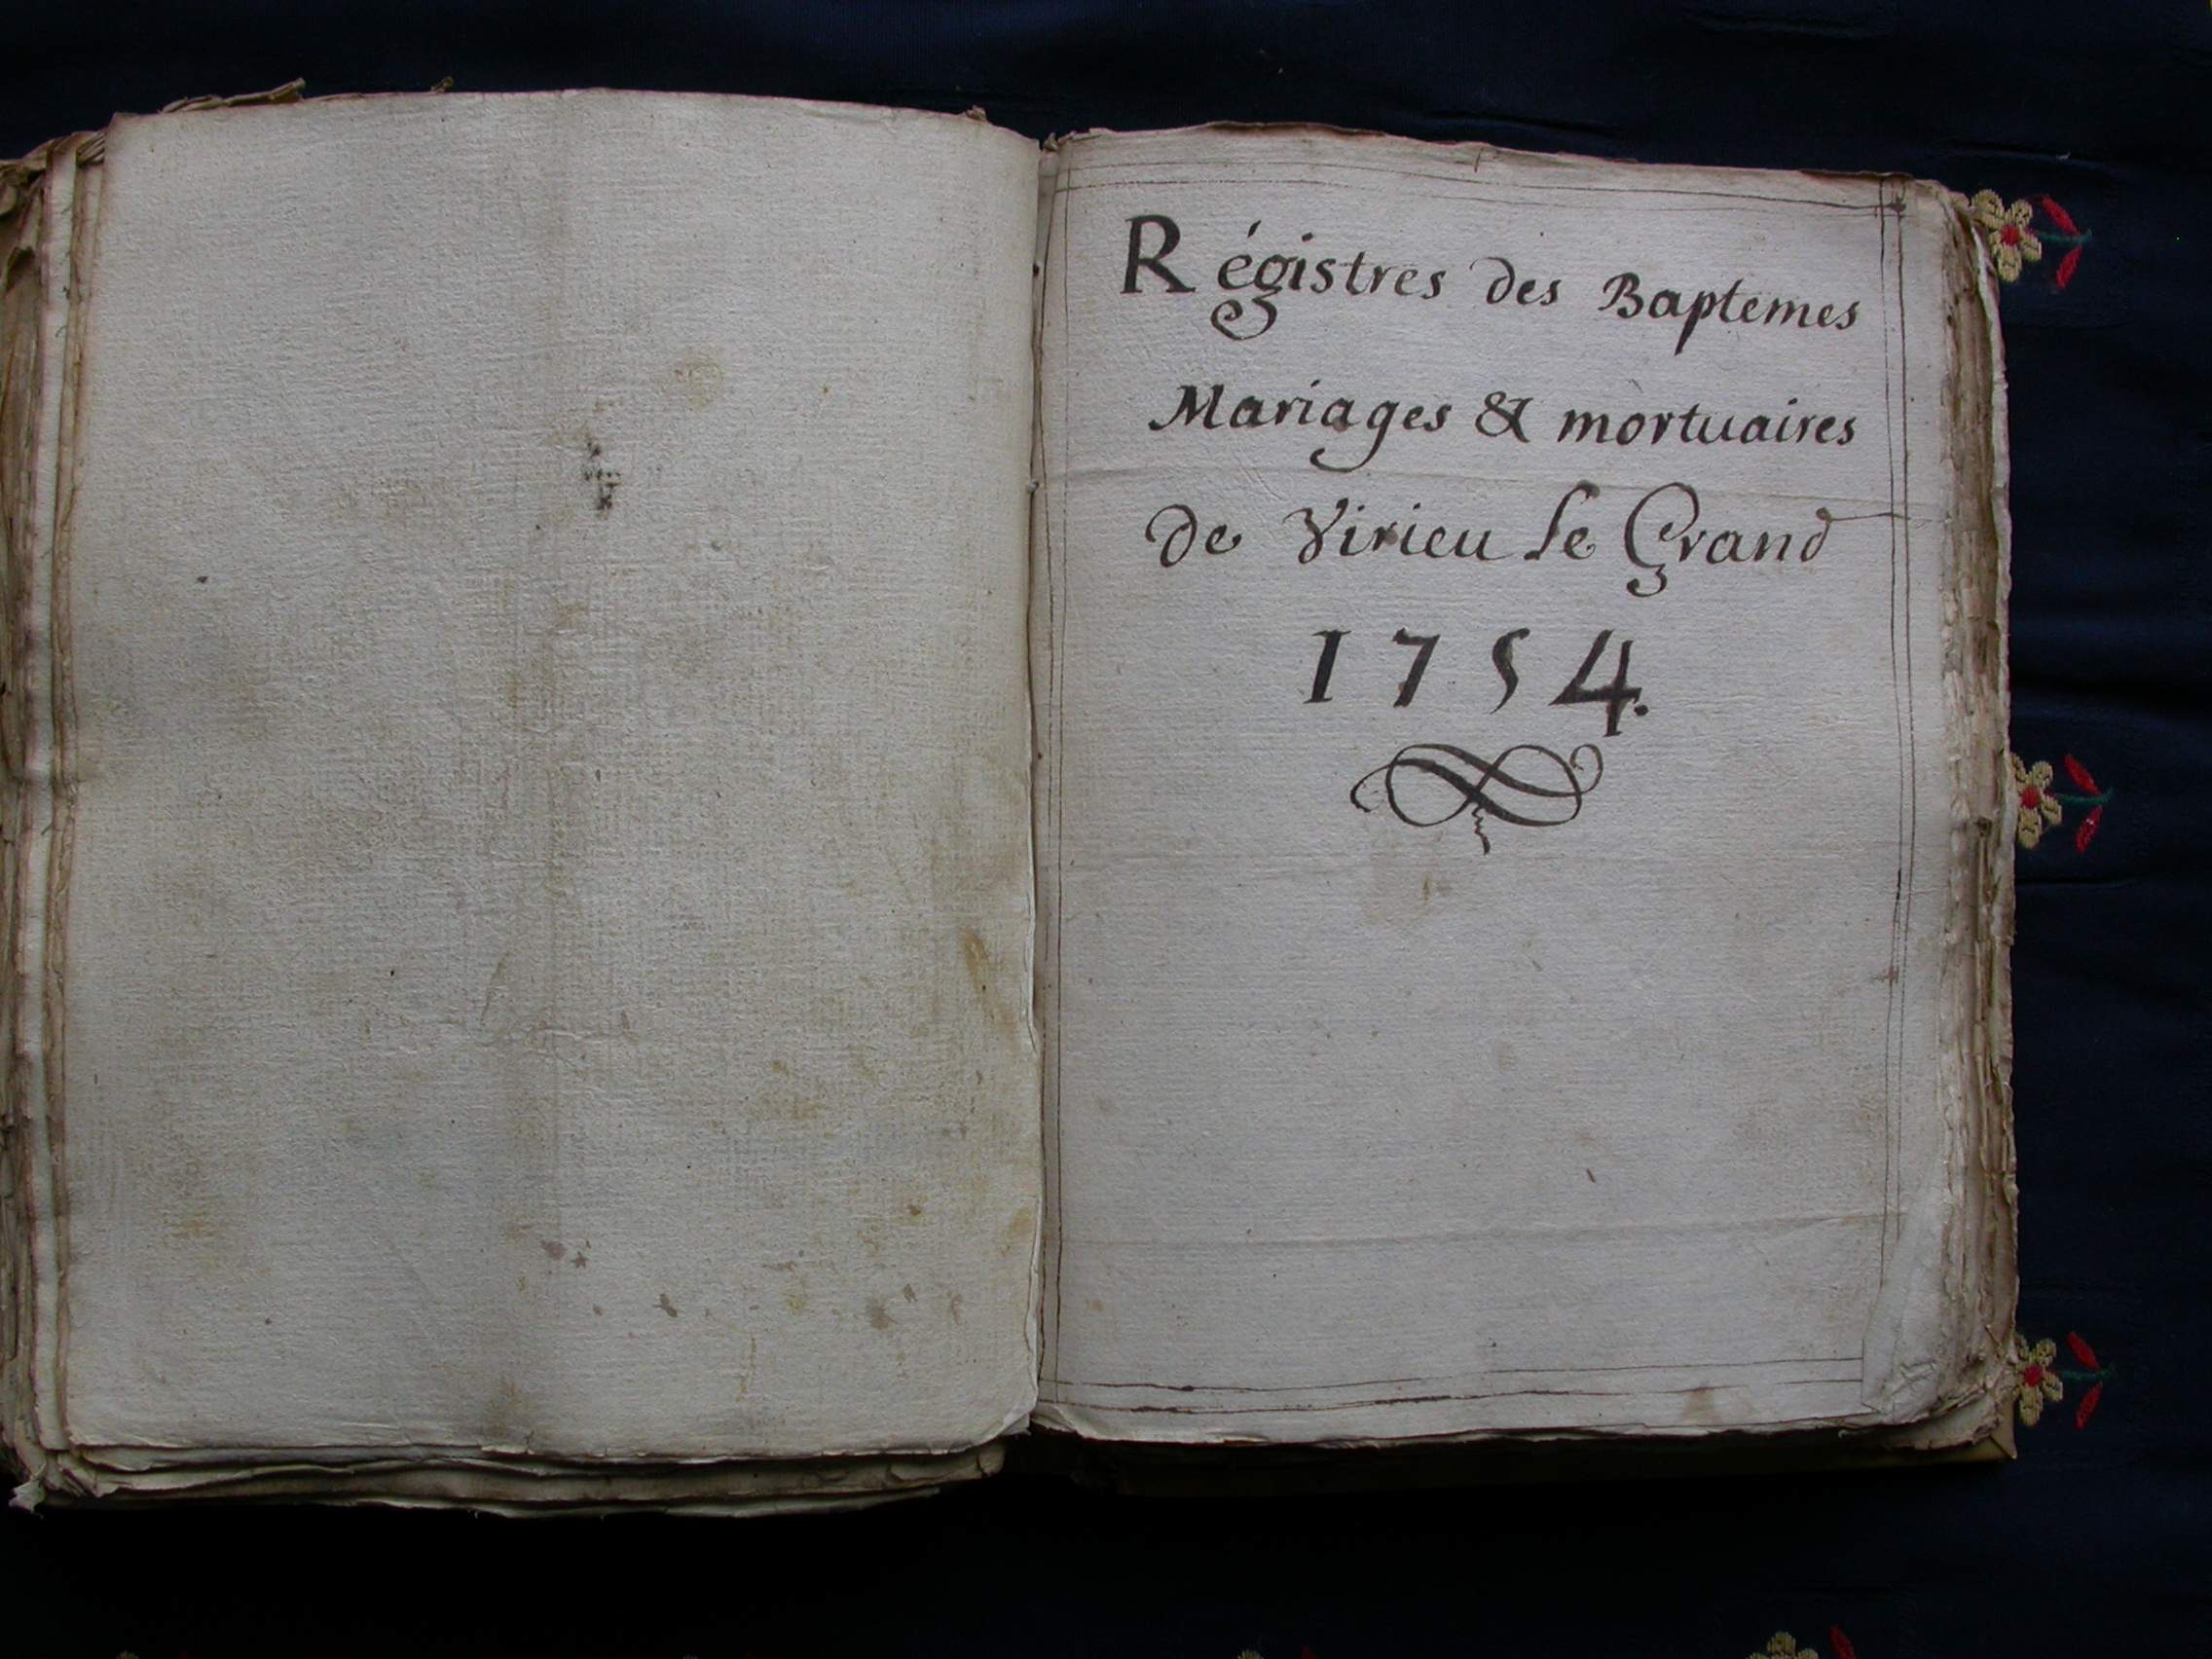 Régistres des Baptemes
Mariages & mortuaires
de Virieu Le Grand
1754.